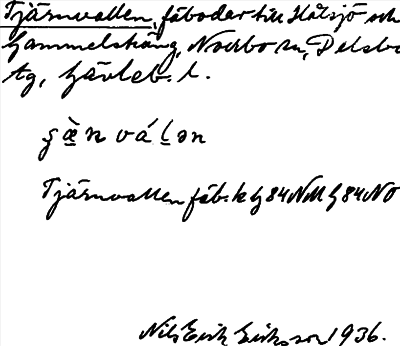 Tjärnvallen, fäbodar till Hålsjö och
Gammelsträng, Norrbo sn, Delsbo
tg, Gävleb. l.
ʂæ̀n válən
Tjärnvallen fäb. k bl 84 NV bl 84 NO
Nils Erik Eriksson 1936.